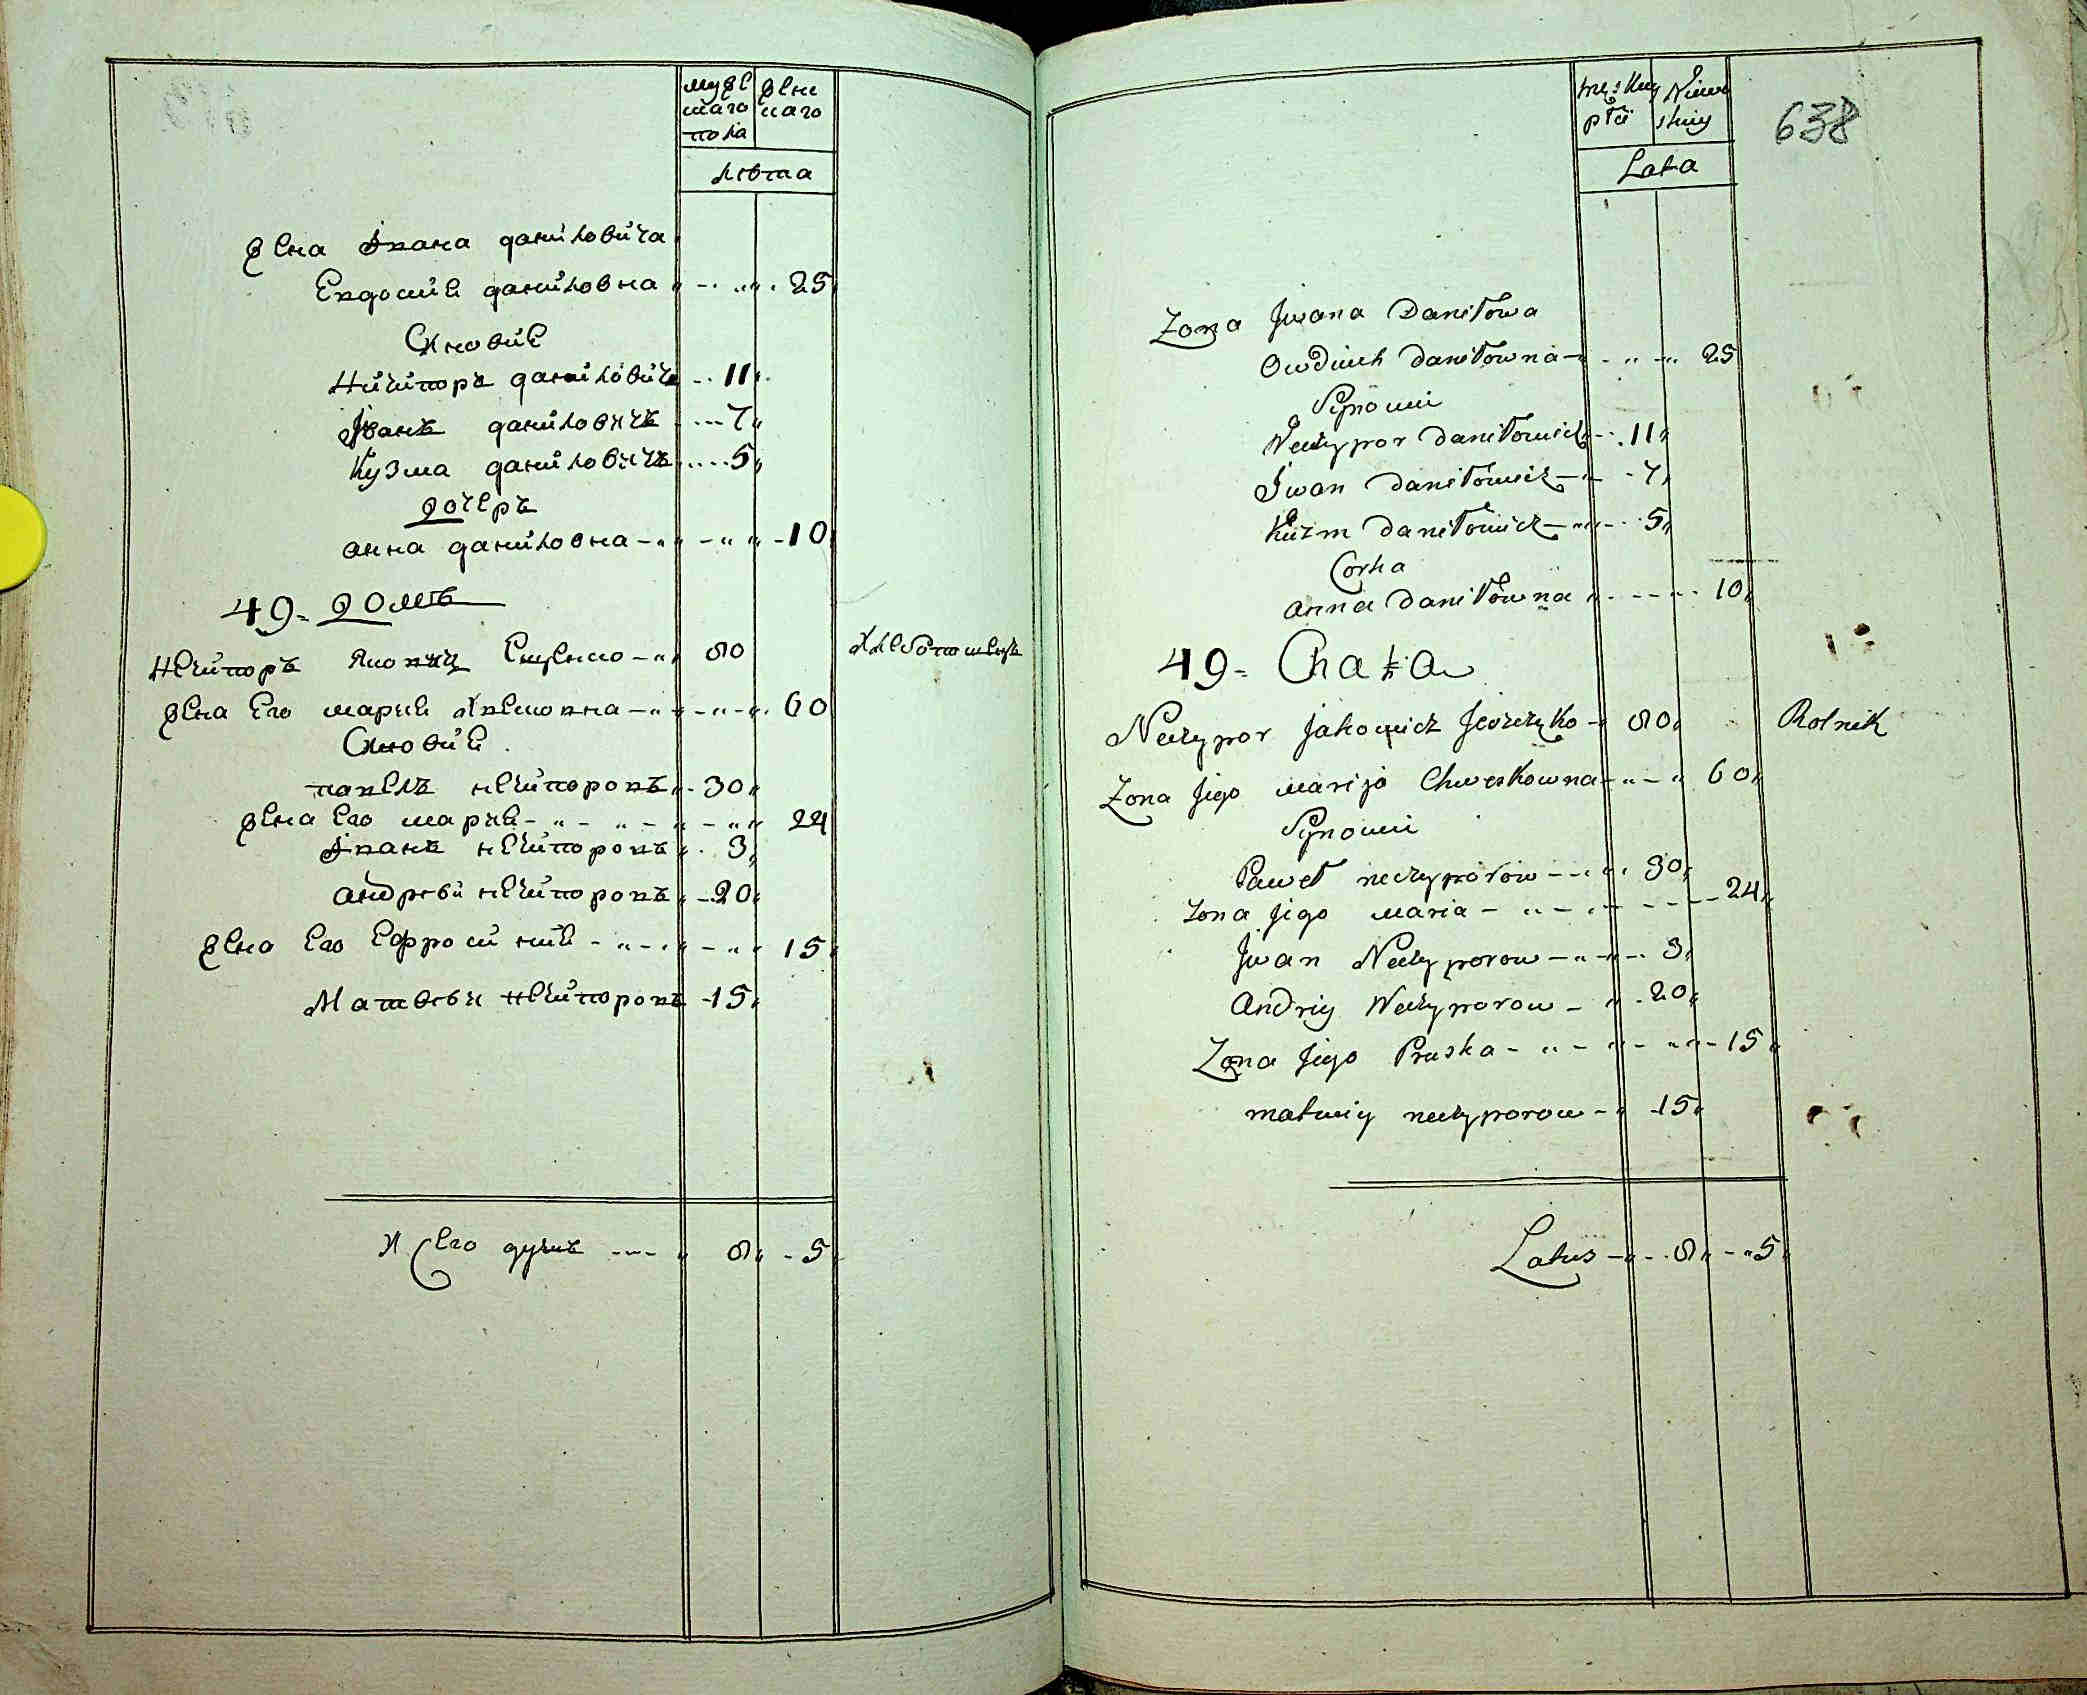 мужескаго пола
женскаго
лѣта
жена Ивана даниловича
Евдокия даниловна 25
Сыновия
Ничипоръ даниловичъ 11
Иванъ даниловичъ 7
Кузма даниловичъ 5
дочеръ
анна даниловна 10
49. домъ
Нечипоръ Яковичъ 80
жена Его мария 60
Сыновия
павелъ нечипоровъ 30
жена Его мария 24
Иванъ нечипоровъ 3
андрей нечипоровъ 20
жена Его Ефросиния 15
Матвѣй нечипоровъ 15
И Его душъ 8 5
męskiey płci
Niewi
Lata
638
Zona Jwana Daniłowa
Owdiuch Daniłowna 25
Synowi
Neczypor Daniłowicz 11
Jwan Daniłowicz 7
Kuzm Daniłowicz 5
Corka
anna Daniłowna 10
49. Chata
Neczypor Jakowicz 80 Rolnik
Zona Jigo marija Chweskowna 60
Synowi
Paweł neczyporow 30
Zona Jigo maria 24
Jwan Neczyporow 3
Andriy Neczyporow 20
Zona Jigo Pruska 15
matwiy neczyporow 15
Latus 8 5